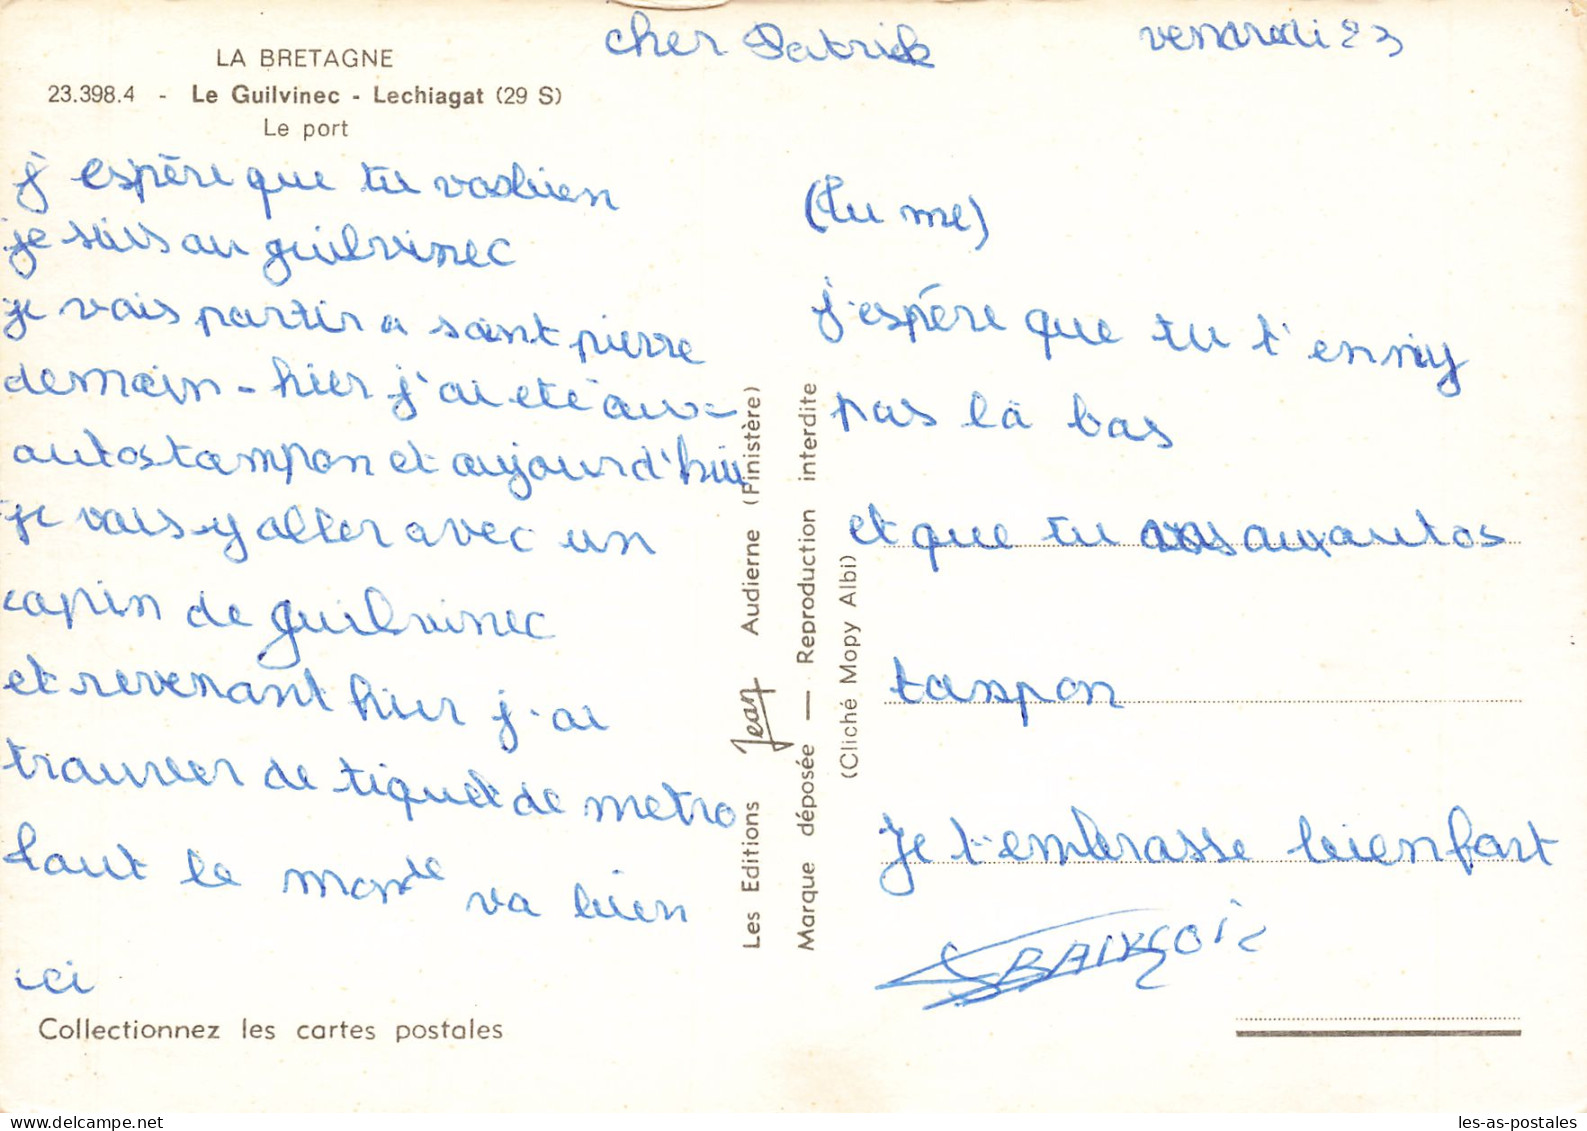 cher Patrick
vendredi 23
LA BRETAGNE
23.398.4 - Le Guilvinec - Lechiagat (29 S)
Le port
j'espère que tu vas bien
je suis au guilvinec
je vais partir a saint pierre
demain - hier j'ai eté aux
autos tampon et aujourd'hui
je vais y aller avec un
copin de guilvinec
et revenant hier j'ai
trouver de tiquet de metro
tout le monde va bien
ici
Collectionnez les cartes postales
Les Editions Jean Audierne (Finistère)
Marque déposée — Reproduction interdite
(Cliché Mopy Albi)
(tu me)
j'espère que tu t'enniy
pas la bas
et que tu vas aux autos
tanpon
Je t'embrasse bien fort
FRANÇOIS
les-as-postales